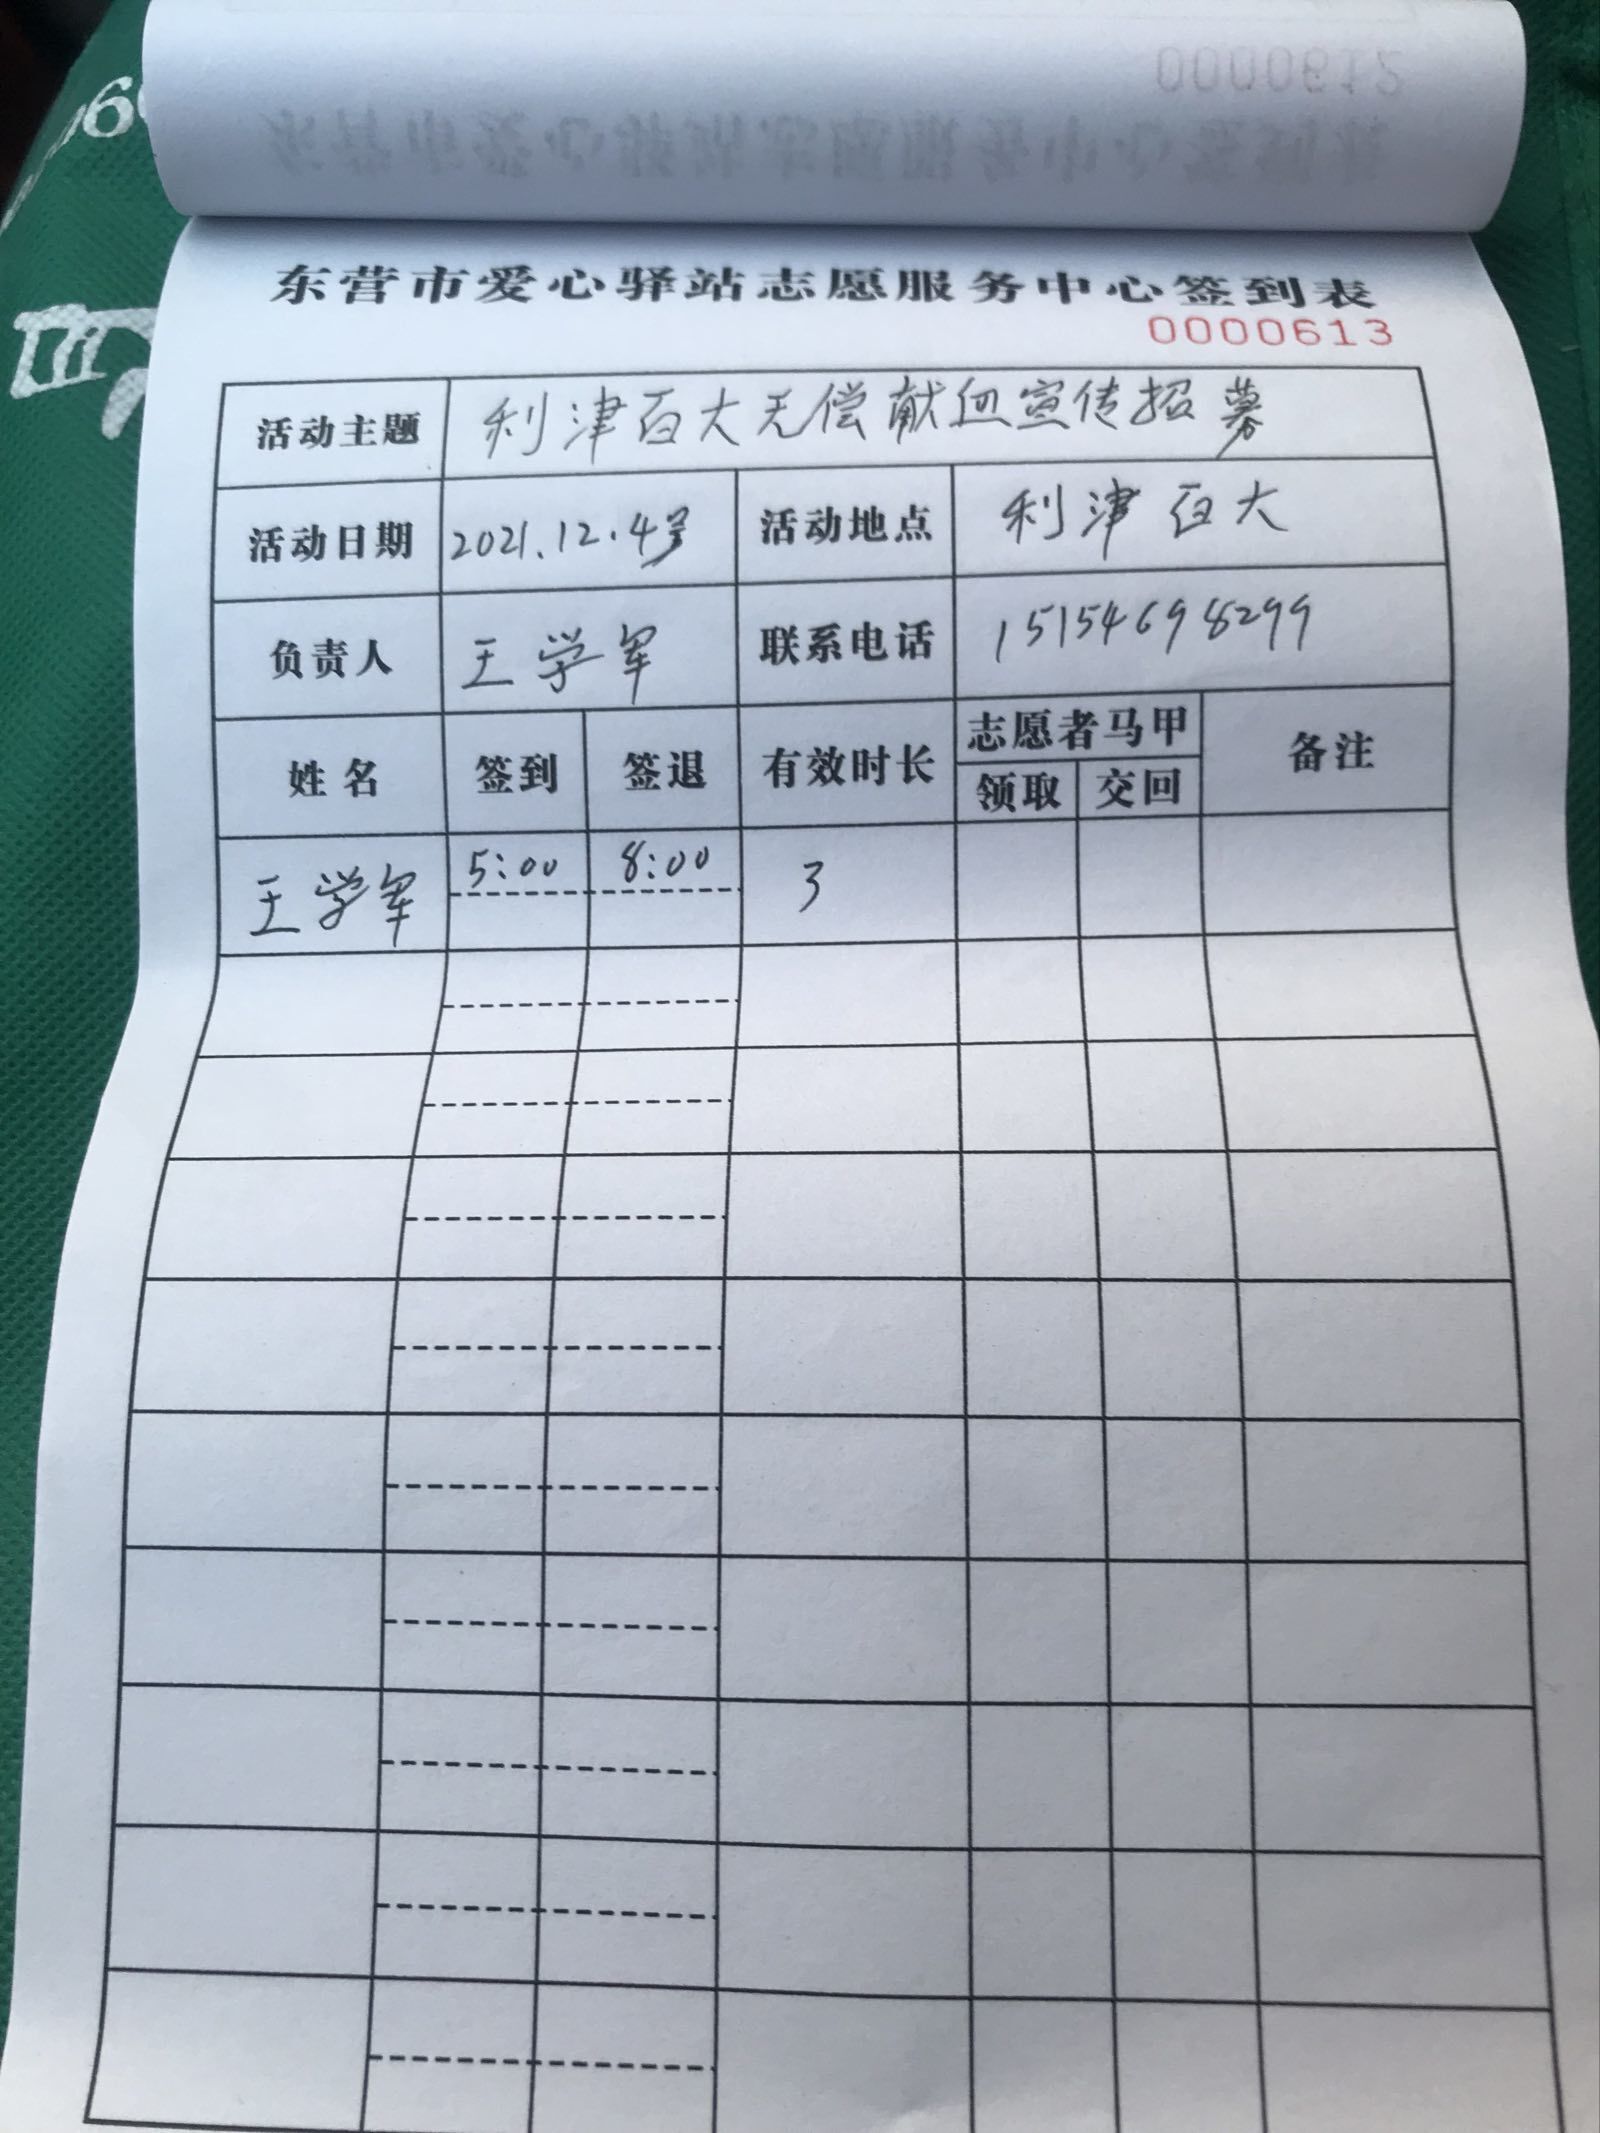 0000612
东营市爱心驿站志愿服务中心签到表
东营市爱心驿站志愿服务中心签到表
0000613
活动主题 利津百大无偿献血宣传招募
活动日期 2021.12.4号 活动地点 利津百大
负责人 王学军 联系电话 15154698299
姓名 签到 签退 有效时长 志愿者马甲 备注
领取 交回
王学军 5:00 8:00 3